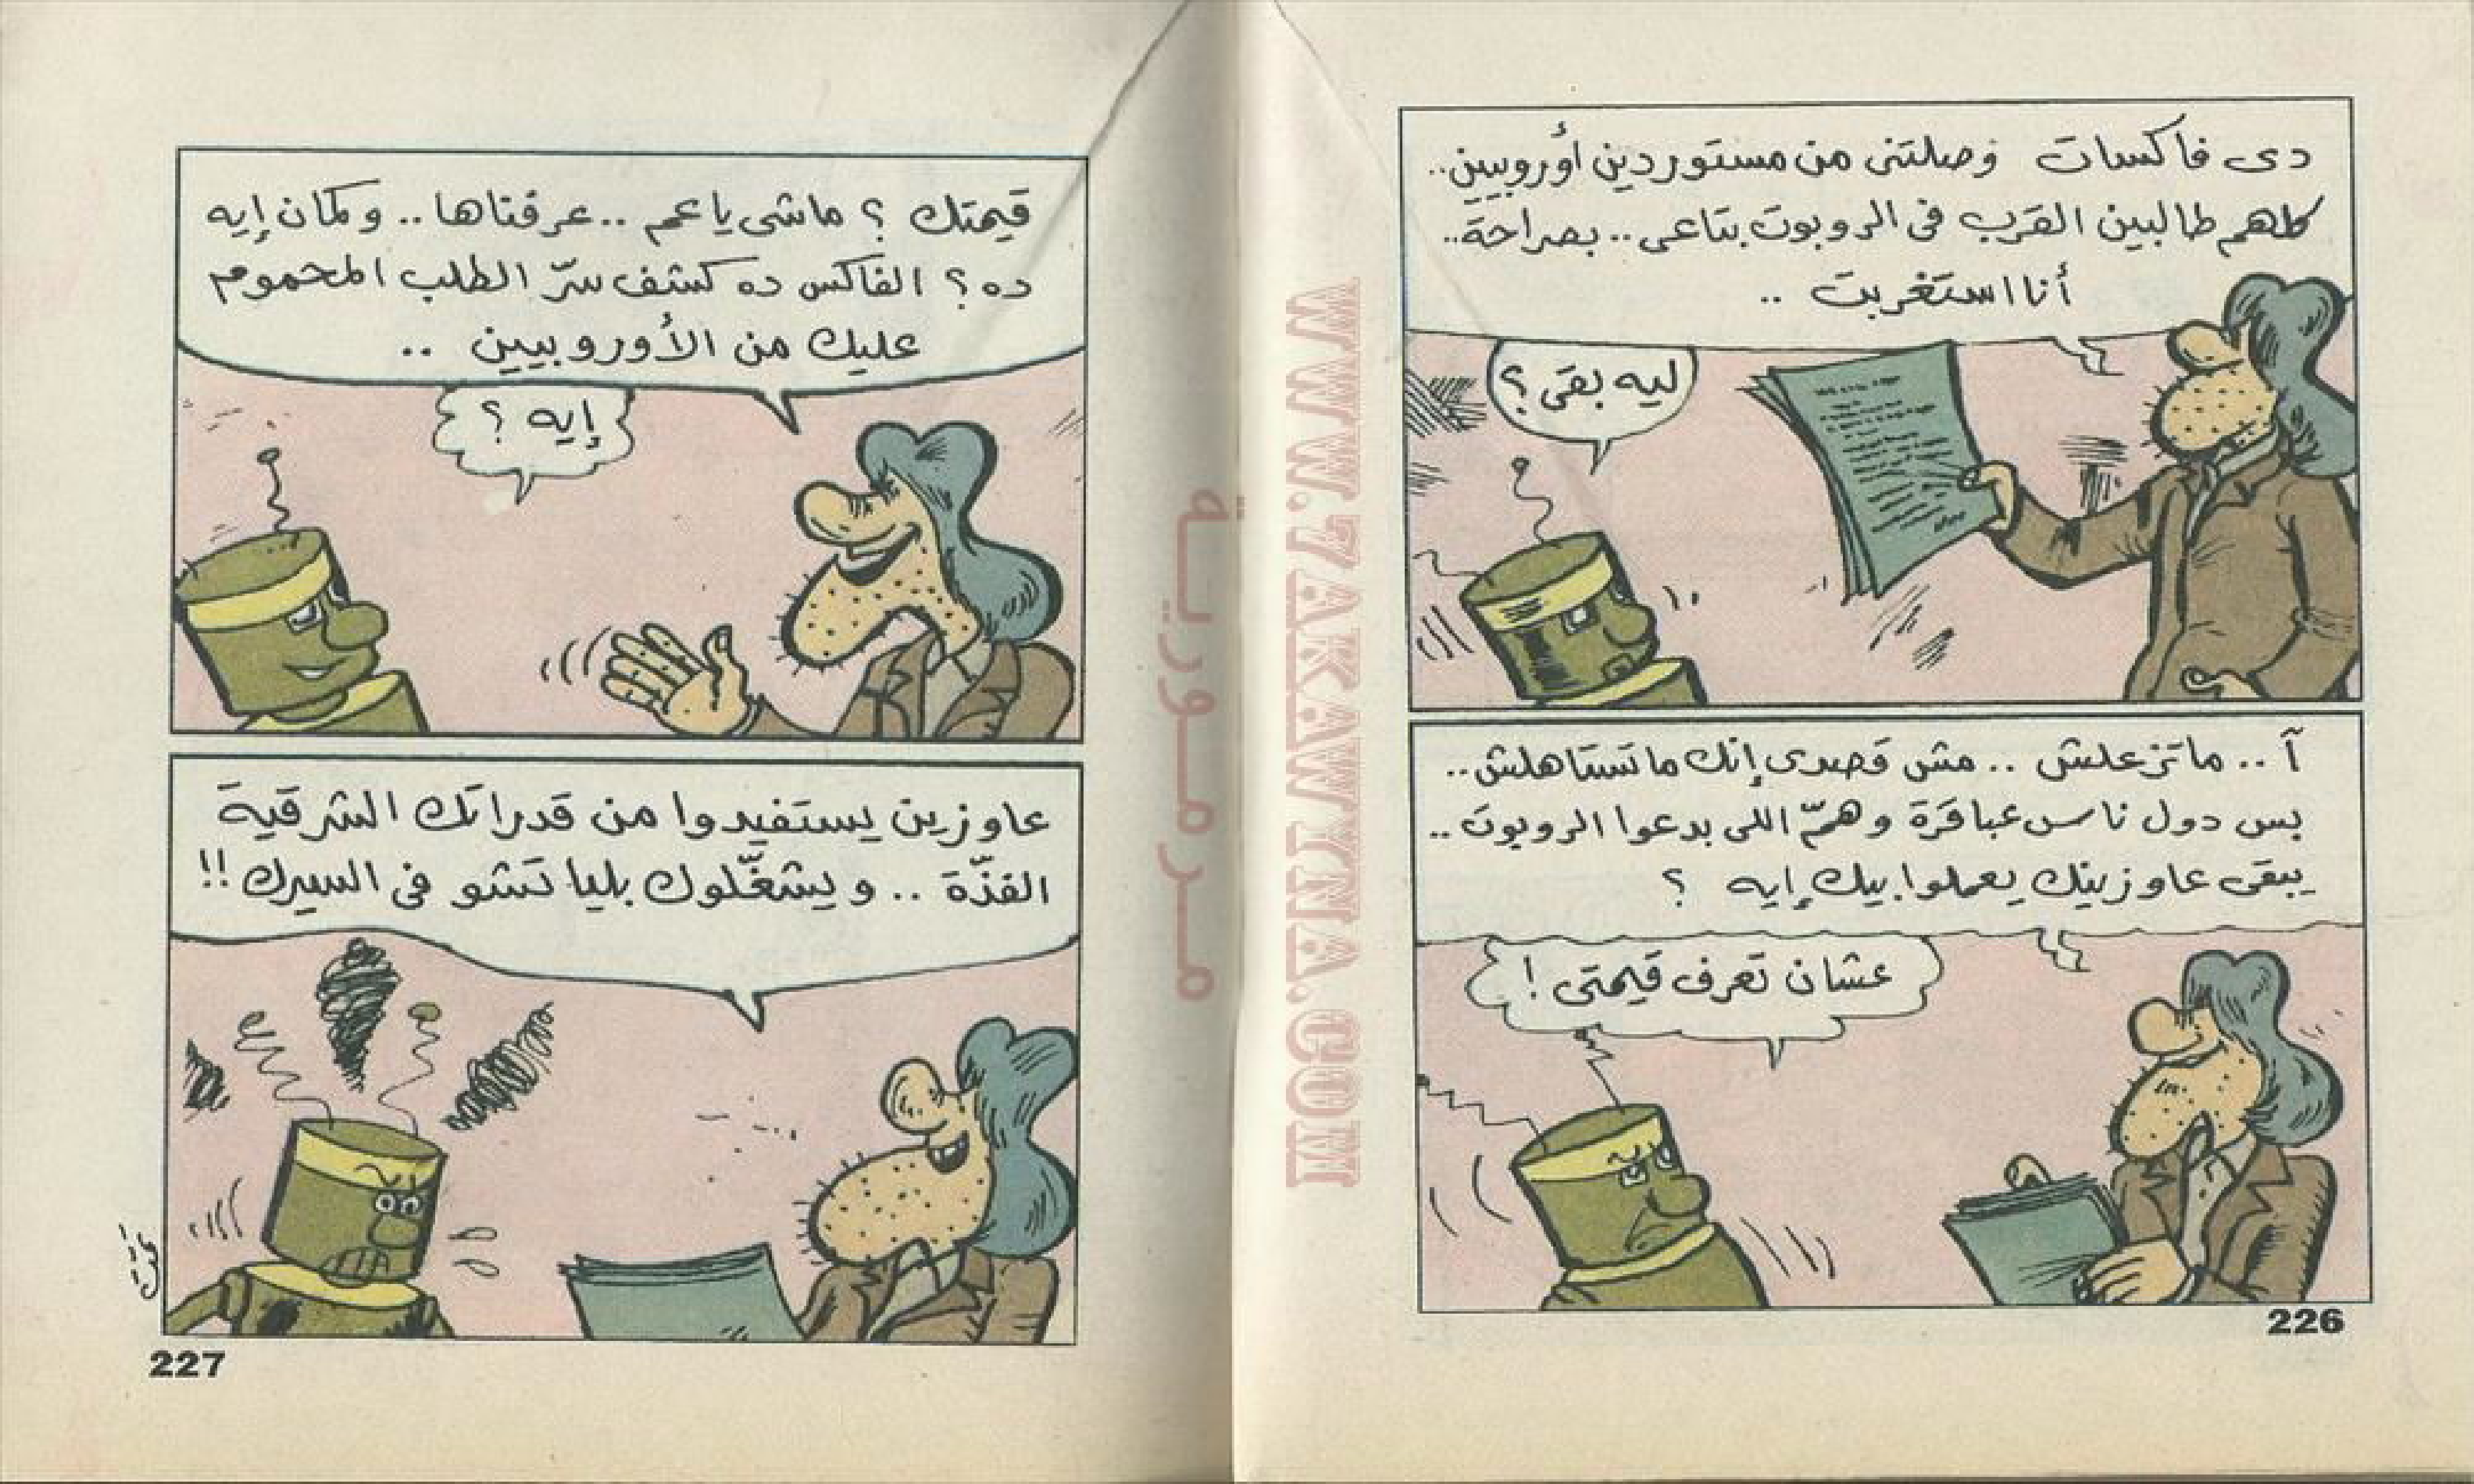 دى فاكسات وصلتنى من مستوردين أوروبيين..
كلهم طالبين القرب فى الروبوت بتاعى.. بصراحة..
أنا استغربت ..
ليه بقى ؟
آ .. ماتزعلش .. مش قصدى إنك ماتستاهلش..
بس دول ناس عباقرة وهمّ اللى بدعوا الروبوت ..
يبقى عاوزينك يعملوا بيك إيه ؟
عشان تعرف قيمتى !
226
قيمتك ؟ ماشى ياعم .. عرفناها .. وكمان إيه
ده ؟ الفاكس ده كشف سرّ الطلب المحموم
عليك من الأوروبيين ..
إيه ؟
عاوزين يستفيدوا من قدراتك الشرقية
الفذّة .. ويشغّلوك بلياتشو فى السيرك !!
227
مرمورية
WWW.7AKAWYNA.COM